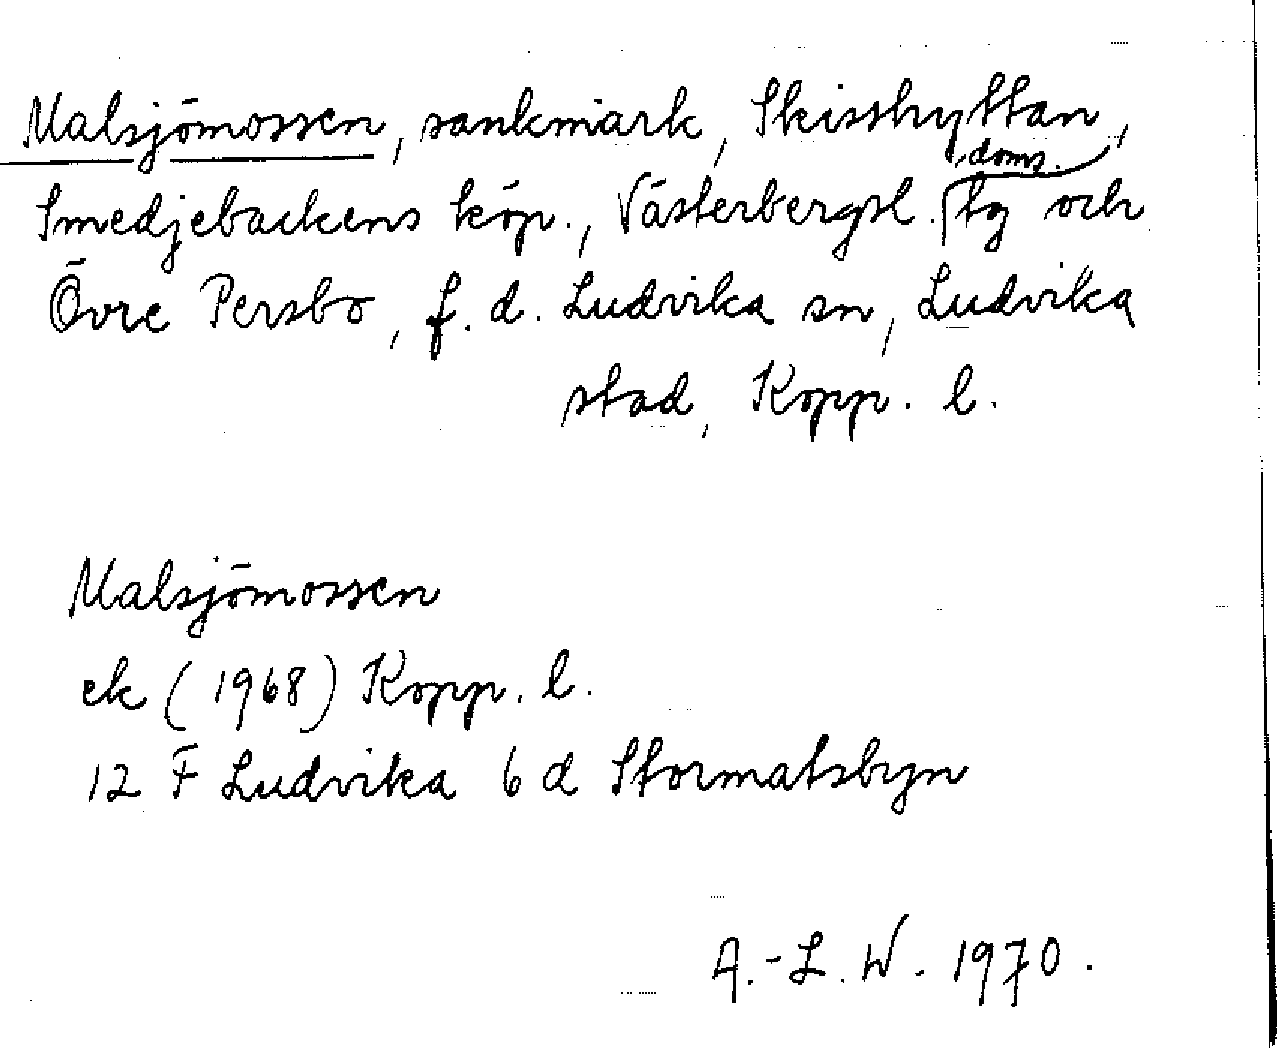 Malsjömossen, sankmark, Skisshyttan,
Smedjebackens köp., Västerbergsl. doms. tg och
Övre Persbo, f. d. Ludvika sn, Ludvika
stad, Kopp. l.
Malsjömossen
ek (1968) Kopp. l.
12 F Ludvika 6 d Stormatsbyn
A.-L. W. 1970.